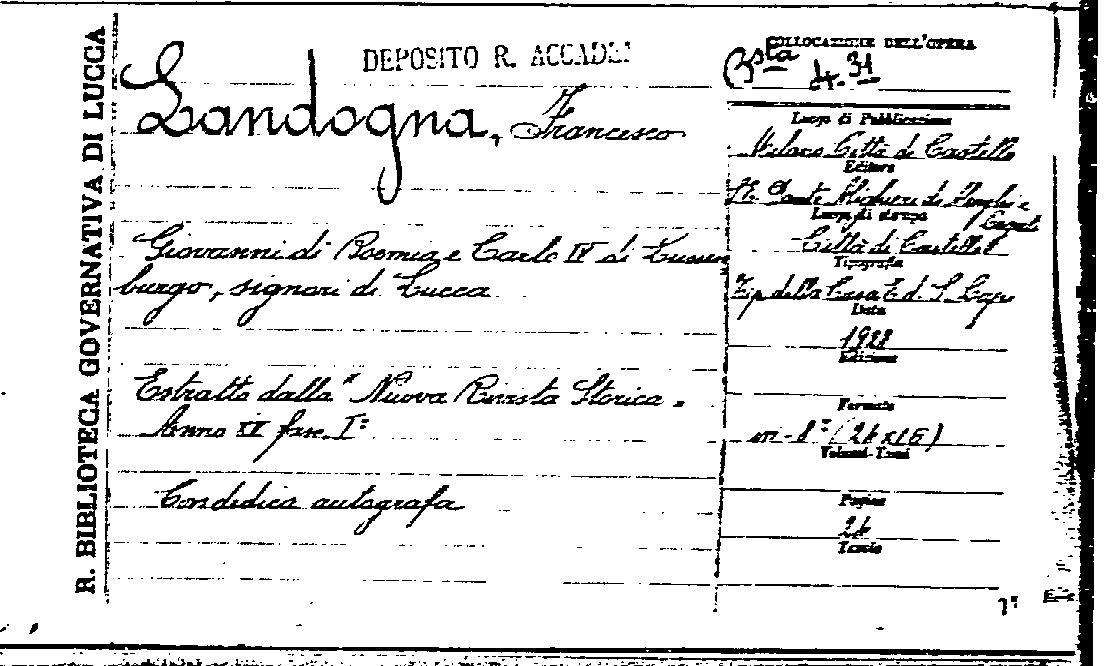 R. BIBLIOTECA GOVERNATIVA DI LUCCA
DEPOSITO R. ACCADE
Landogna, Francesco
Giovanni di Boemia e Carlo IV di Lussem
burgo, signori di Lucca
Estratto dalla "Nuova Rivista Storica"
Anno XII fasc. I°
Con dedica autografa
COLLOCAZIONE DELL'OPERA
Bsta 4. 31
Luogo di Pubblicazione
Milano Città di Castello
Editore
Dante Alighieri di
Luogo di stampa
Città di Castello
Tipografia
Tip. della Casa Ed. S. Lapi
Data
1928
Edizione
Formato
in-8° (24x16)
Volumi-Tomi
Pagine
24
Tavole